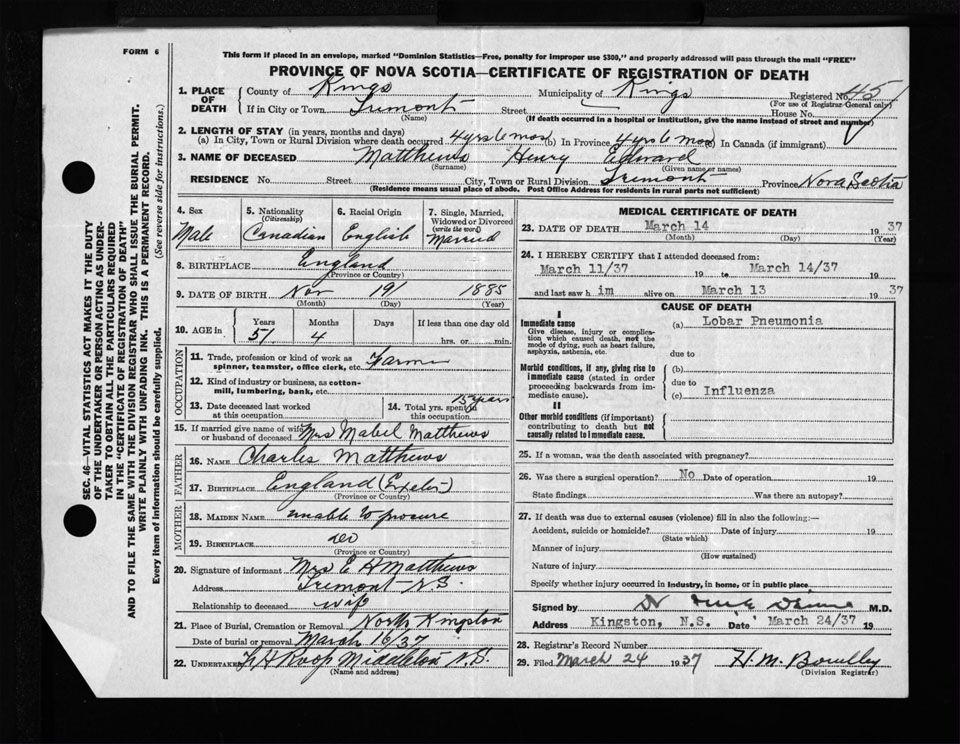 FORM 6
This form if placed in an envelope, marked "Dominion Statistics—Free, penalty for improper use $300," and properly addressed will pass through the mail "FREE"
PROVINCE OF NOVA SCOTIA—CERTIFICATE OF REGISTRATION OF DEATH
1. PLACE OF DEATH County of Kings Municipality of Kings Registered No. 45
(For use of Registrar-General only)
If in City or Town Tremont Street House No.
(Name) (If death occurred in a hospital or institution, give the name instead of street and number)
2. LENGTH OF STAY (in years, months and days)
(a) In City, Town or Rural Division where death occurred 4 yrs 6 mos (b) In Province 4 yrs 6 mos (c) In Canada (if immigrant)
3. NAME OF DECEASED Matthews Henry Edward
(Surname) (Given name or names)
RESIDENCE No. Street City, Town or Rural Division Tremont Province Nova Scotia
(Residence means usual place of abode. Post Office Address for residents in rural parts not sufficient)
SEC. 46—VITAL STATISTICS ACT MAKES IT THE DUTY
OF THE UNDERTAKER OR PERSON ACTING AS UNDER-
TAKER TO OBTAIN ALL THE PARTICULARS REQUIRED
IN THE "CERTIFICATE OF REGISTRATION OF DEATH"
AND TO FILE THE SAME WITH THE DIVISION REGISTRAR WHO SHALL ISSUE THE BURIAL PERMIT.
WRITE PLAINLY WITH UNFADING INK. THIS IS A PERMANENT RECORD.
Every item of information should be carefully supplied. (See reverse side for instructions.)
4. Sex Male
5. Nationality (Citizenship) Canadian
6. Racial Origin English
7. Single, Married, Widowed or Divorced (write the word) Married
8. BIRTHPLACE England
(Province or Country)
9. DATE OF BIRTH Nov 19 1885
(Month) (Day) (Year)
10. AGE in Years 51 Months 4 Days If less than one day old
hrs. or min.
OCCUPATION
11. Trade, profession or kind of work as spinner, teamster, office clerk, etc. Farmer
12. Kind of industry or business, as cotton-mill, lumbering, bank, etc.
13. Date deceased last worked at this occupation
14. Total yrs. spent in this occupation 15 years
15. If married give name of wife or husband of deceased Mrs Mabel Matthews
FATHER
16. NAME Charles Matthews
17. BIRTHPLACE England (Exeter)
(Province or Country)
MOTHER
18. MAIDEN NAME unable to procure
19. BIRTHPLACE do
(Province or Country)
20. Signature of informant Mrs E H Matthews
Address Tremont N.S.
Relationship to deceased wife
21. Place of Burial, Cremation or Removal North Kingston
Date of burial or removal March 16/37
22. UNDERTAKER Roop Middleton N.S.
(Name and address)
MEDICAL CERTIFICATE OF DEATH
23. DATE OF DEATH March 14 19 37
(Month) (Day) (Year)
24. I HEREBY CERTIFY that I attended deceased from:
March 11/37 19 to March 14/37 19
and last saw h im alive on March 13 19 37
CAUSE OF DEATH
I
Immediate cause
Give disease, injury or complica-
tion which caused death, not the
mode of dying, such as heart failure,
asphyxia, asthenia, etc.
(a) Lobar Pneumonia
due to
Morbid conditions, if any, giving rise to
immediate cause (stated in order
proceeding backwards from im-
mediate cause).
(b)
due to
(c) Influenza
II
Other morbid conditions (if important)
contributing to death but not
causally related to immediate cause.
25. If a woman, was the death associated with pregnancy?
26. Was there a surgical operation? No Date of operation 19
State findings Was there an autopsy?
27. If death was due to external causes (violence) fill in also the following:—
Accident, suicide or homicide? Date of injury 19
(State which)
Manner of injury
(How sustained)
Nature of injury
Specify whether injury occurred in industry, in home, or in public place
Signed by M.D.
Address Kingston, N.S. Date March 24/37 19
28. Registrar's Record Number
29. Filed March 24 1937 H. M.
(Division Registrar)